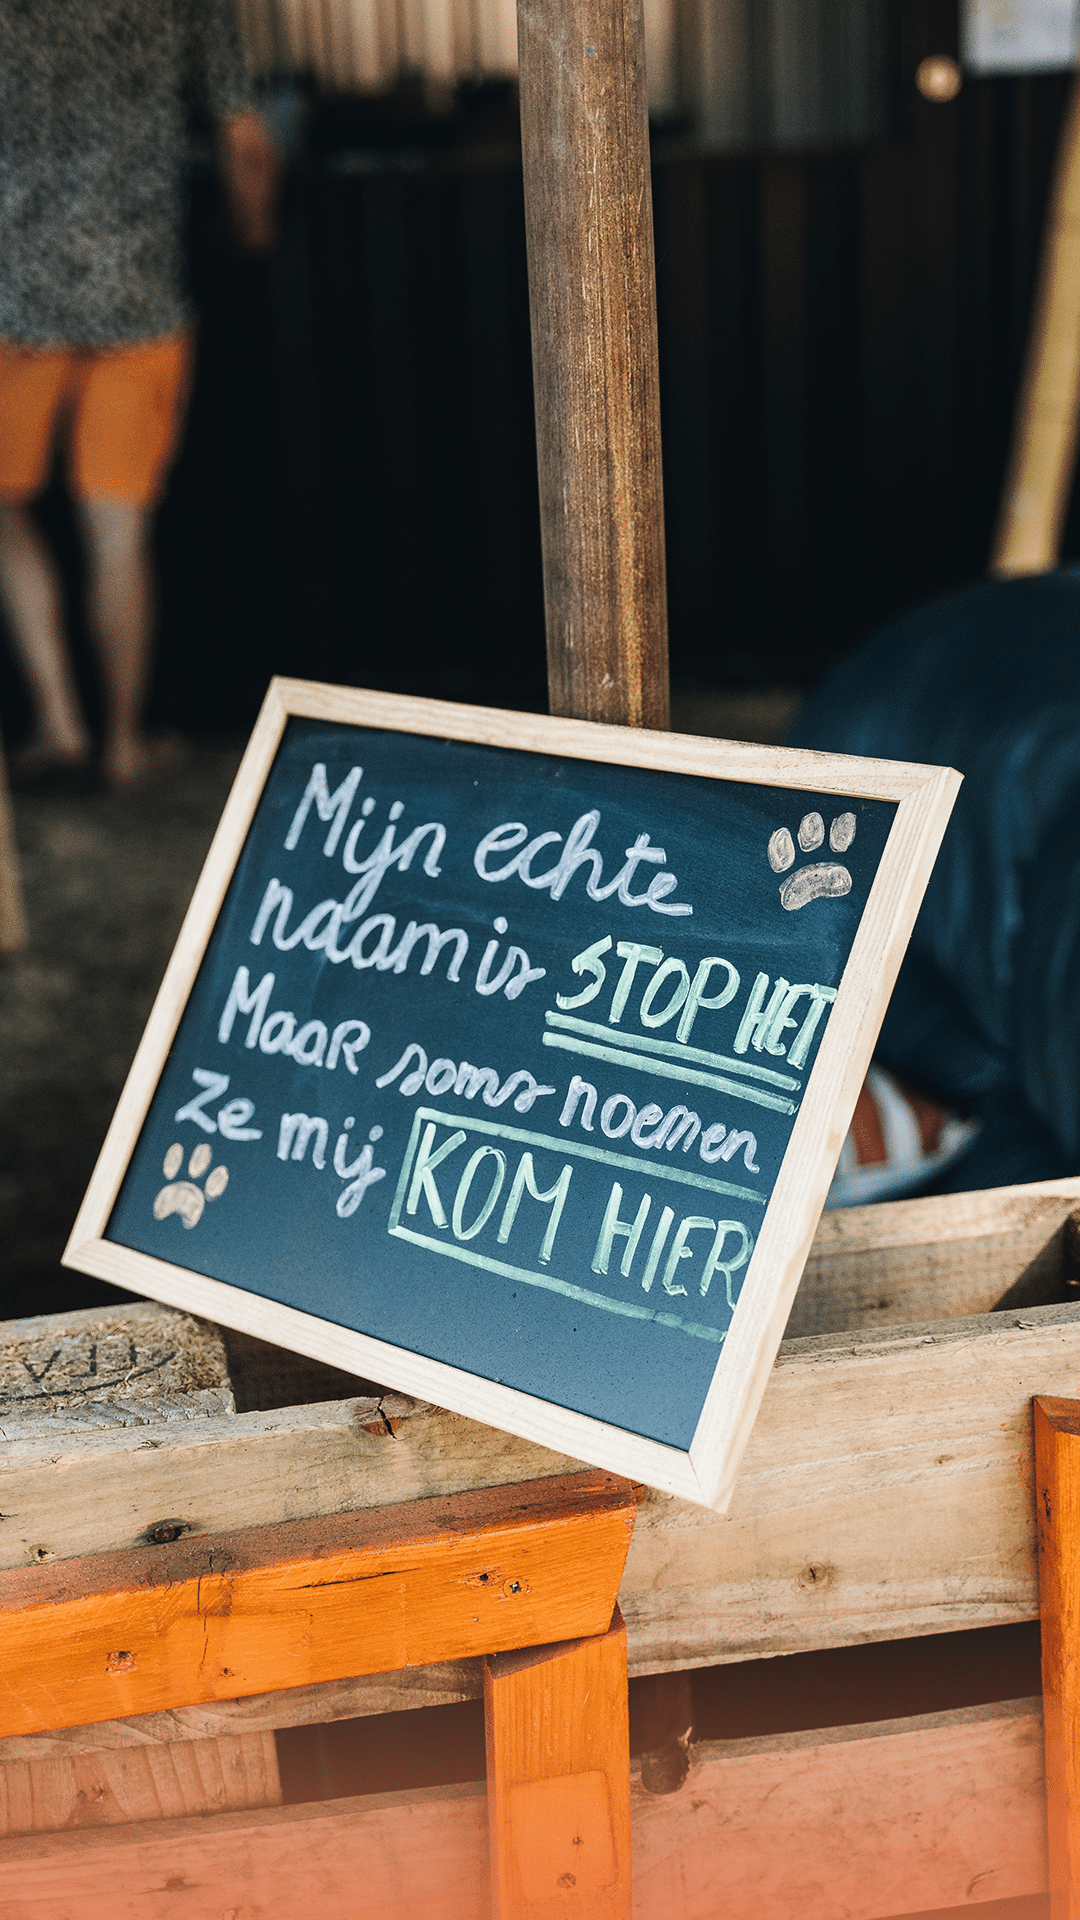 Mijn echte
naam is STOP HET
Maar soms noemen
ze mij KOM HIER